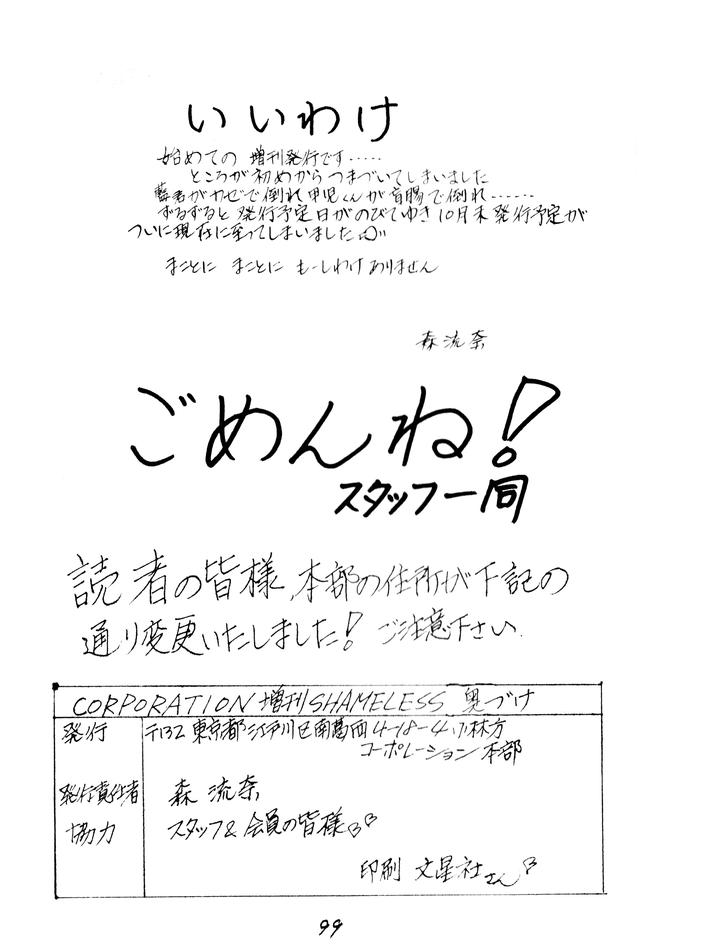 いいわけ
始めての 増刊発行です‥‥‥
ところが初めから つまづいてしまいました
がカゼで倒れ 甲児くんが盲腸で倒れ‥‥‥‥
ずるずると 発行予定日がのびてゆき 10月末 発行予定が
ついに現在に至ってしまいました
まことに まことに もーしわけ ありません
森 流奈
ごめんね!
スタッフ一同
読者の皆様、本部の住所が下記の
通り変更いたしました! ご注意下さい.
CORPORATION増刊SHAMELESS 奥づけ
発行 〒132 東京都江戸川区南葛西4-18-4 小林方
コーポレーション本部
発行責任者 森 流奈
協力 スタッフ& 会員の皆様
印刷 文星社さん
99